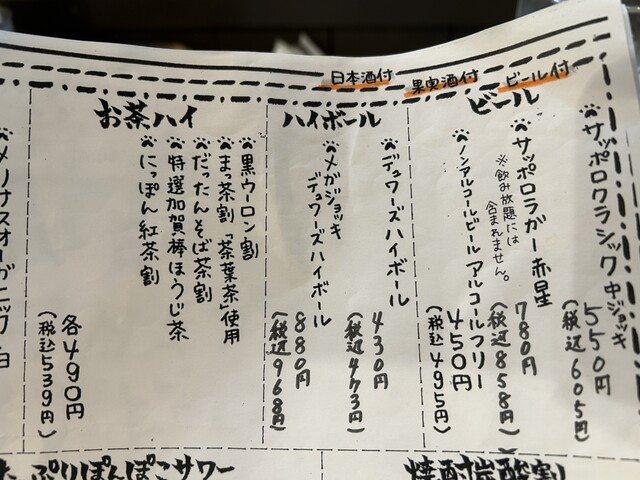 日本酒付
果実酒付
ビール付
ビール
サッポロクラシック中ジョッキ
550円
(税込605円)
サッポロラガー赤星
※飲み放題には
含まれません。
780円
(税込858円)
ノンアルコールビール アルコールフリー
450円
(税込495円)
ハイボール
デュワーズハイボール
430円
(税込473円)
メガジョッキ
デュワーズハイボール
880円
(税込968円)
お茶ハイ
黒ウーロン割
まっ茶割「茶葉茶」使用
だったんそば茶割
特選加賀棒ほうじ茶
にっぽん紅茶割
各490円
(税込539円)
メリナスオーガニック 白
たっぷりぽんぽこサワー
焼酎炭酸割